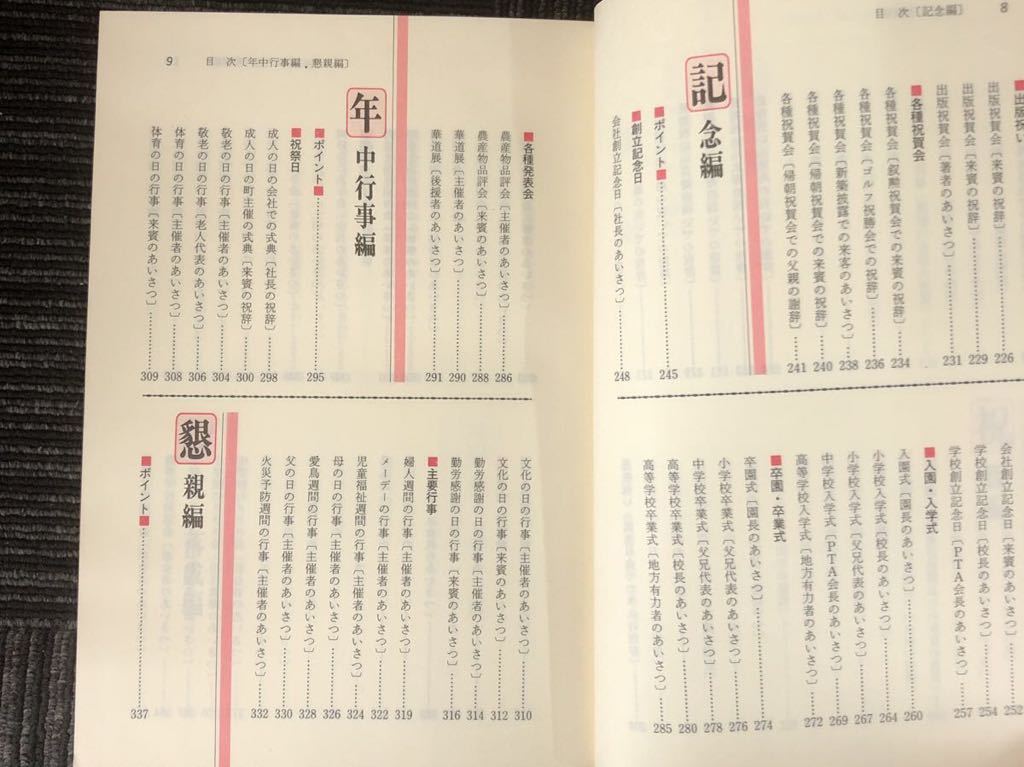 目 次〔記念編〕 8
■出版祝い
出版祝賀会〔来賓の祝辞〕……226
出版祝賀会〔来賓の祝辞〕……229
出版祝賀会〔著者のあいさつ〕……231
■各種祝賀会
各種祝賀会〔叙勲祝賀会での来賓の祝辞〕……234
各種祝賀会〔ゴルフ祝勝会での祝辞〕……236
各種祝賀会〔新築披露での来客のあいさつ〕……238
各種祝賀会〔帰朝祝賀会での来賓の祝辞〕……240
各種祝賀会〔帰朝祝賀会での父親の謝辞〕……241
記念編
■ポイント■……245
■創立記念日
会社創立記念日〔社長のあいさつ〕……248
会社創立記念日〔来賓のあいさつ〕……252
学校創立記念日〔校長のあいさつ〕……254
学校創立記念日〔PTA会長のあいさつ〕……257
■入園・入学式
入園式〔園長のあいさつ〕……260
小学校入学式〔校長のあいさつ〕……264
小学校入学式〔父兄代表のあいさつ〕……267
中学校入学式〔PTA会長のあいさつ〕……269
高等学校入学式〔地方有力者のあいさつ〕……272
■卒園・卒業式
卒園式〔園長のあいさつ〕……274
小学校卒業式〔父兄代表のあいさつ〕……276
中学校卒業式〔父兄代表のあいさつ〕……278
高等学校卒業式〔校長のあいさつ〕……280
高等学校卒業式〔地方有力者のあいさつ〕……285
9 目 次〔年中行事編・懇親編〕
■各種発表会
農産物品評会〔主催者のあいさつ〕……286
農産物品評会〔来賓のあいさつ〕……288
華道展〔主催者のあいさつ〕……290
華道展〔後援者のあいさつ〕……291
年中行事編
■ポイント■……295
■祝祭日
成人の日の会社での式典〔社長の祝辞〕……298
成人の日の町主催の式典〔来賓の祝辞〕……300
敬老の日の行事〔主催者のあいさつ〕……304
敬老の日の行事〔老人代表のあいさつ〕……306
体育の日の行事〔主催者のあいさつ〕……308
体育の日の行事〔来賓のあいさつ〕……309
文化の日の行事〔主催者のあいさつ〕……310
文化の日の行事〔来賓のあいさつ〕……312
勤労感謝の日の行事〔主催者のあいさつ〕……314
勤労感謝の日の行事〔来賓のあいさつ〕……316
■主要行事
婦人週間の行事〔主催者のあいさつ〕……319
メーデーの行事〔主催者のあいさつ〕……322
児童福祉週間の行事〔主催者のあいさつ〕……324
母の日の行事〔主催者のあいさつ〕……326
愛鳥週間の行事〔主催者のあいさつ〕……328
父の日の行事〔主催者のあいさつ〕……330
火災予防週間の行事〔主催者のあいさつ〕……332
懇親編
■ポイント■……337